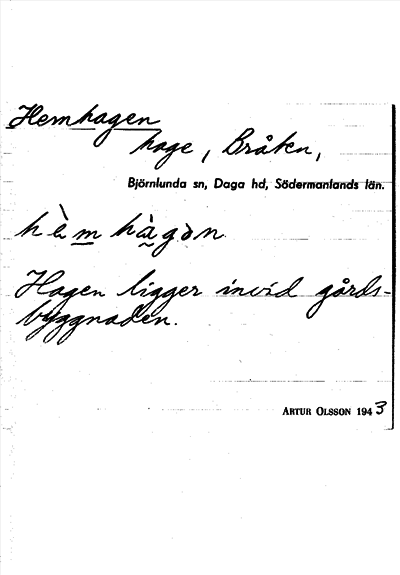 Hemhagen
hage, Bråten,
Björnlunda sn, Daga hd, Södermanlands län.
hὲm hàgən
Hagen ligger invid gårds-
byggnaden.
ARTUR OLSSON 1943